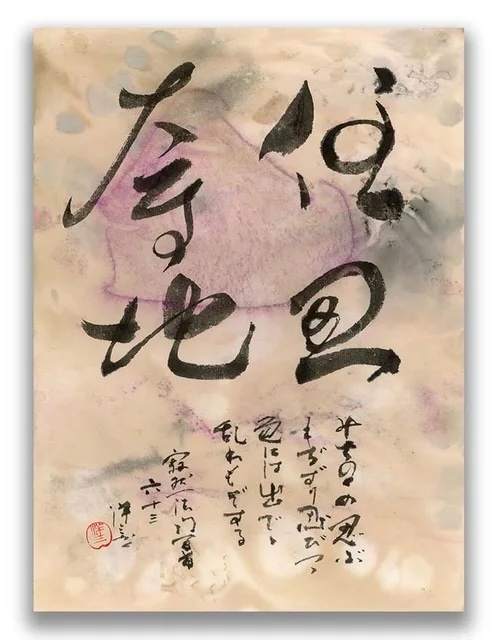 住忍
辱地
みちのくの忍ぶ
もぢずり忍びつゝ
色には出でじ
乱れもぞする
寂然法門百首
六十三
洋三